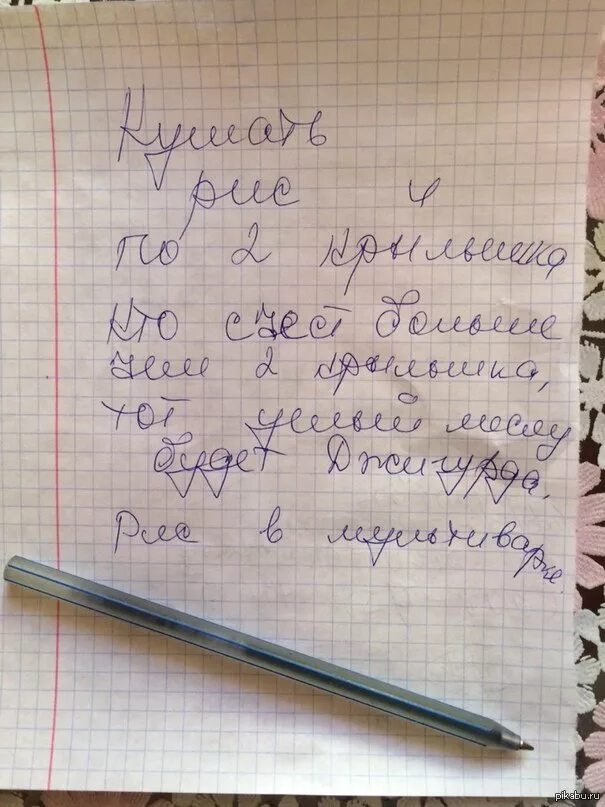 Кушать
рис и
по 2 крылышка
Кто съест больше
чем 2 крылышка,
тот целый месяц
будет Джигурда.
Рис в мультиварке.
pikabu.ru